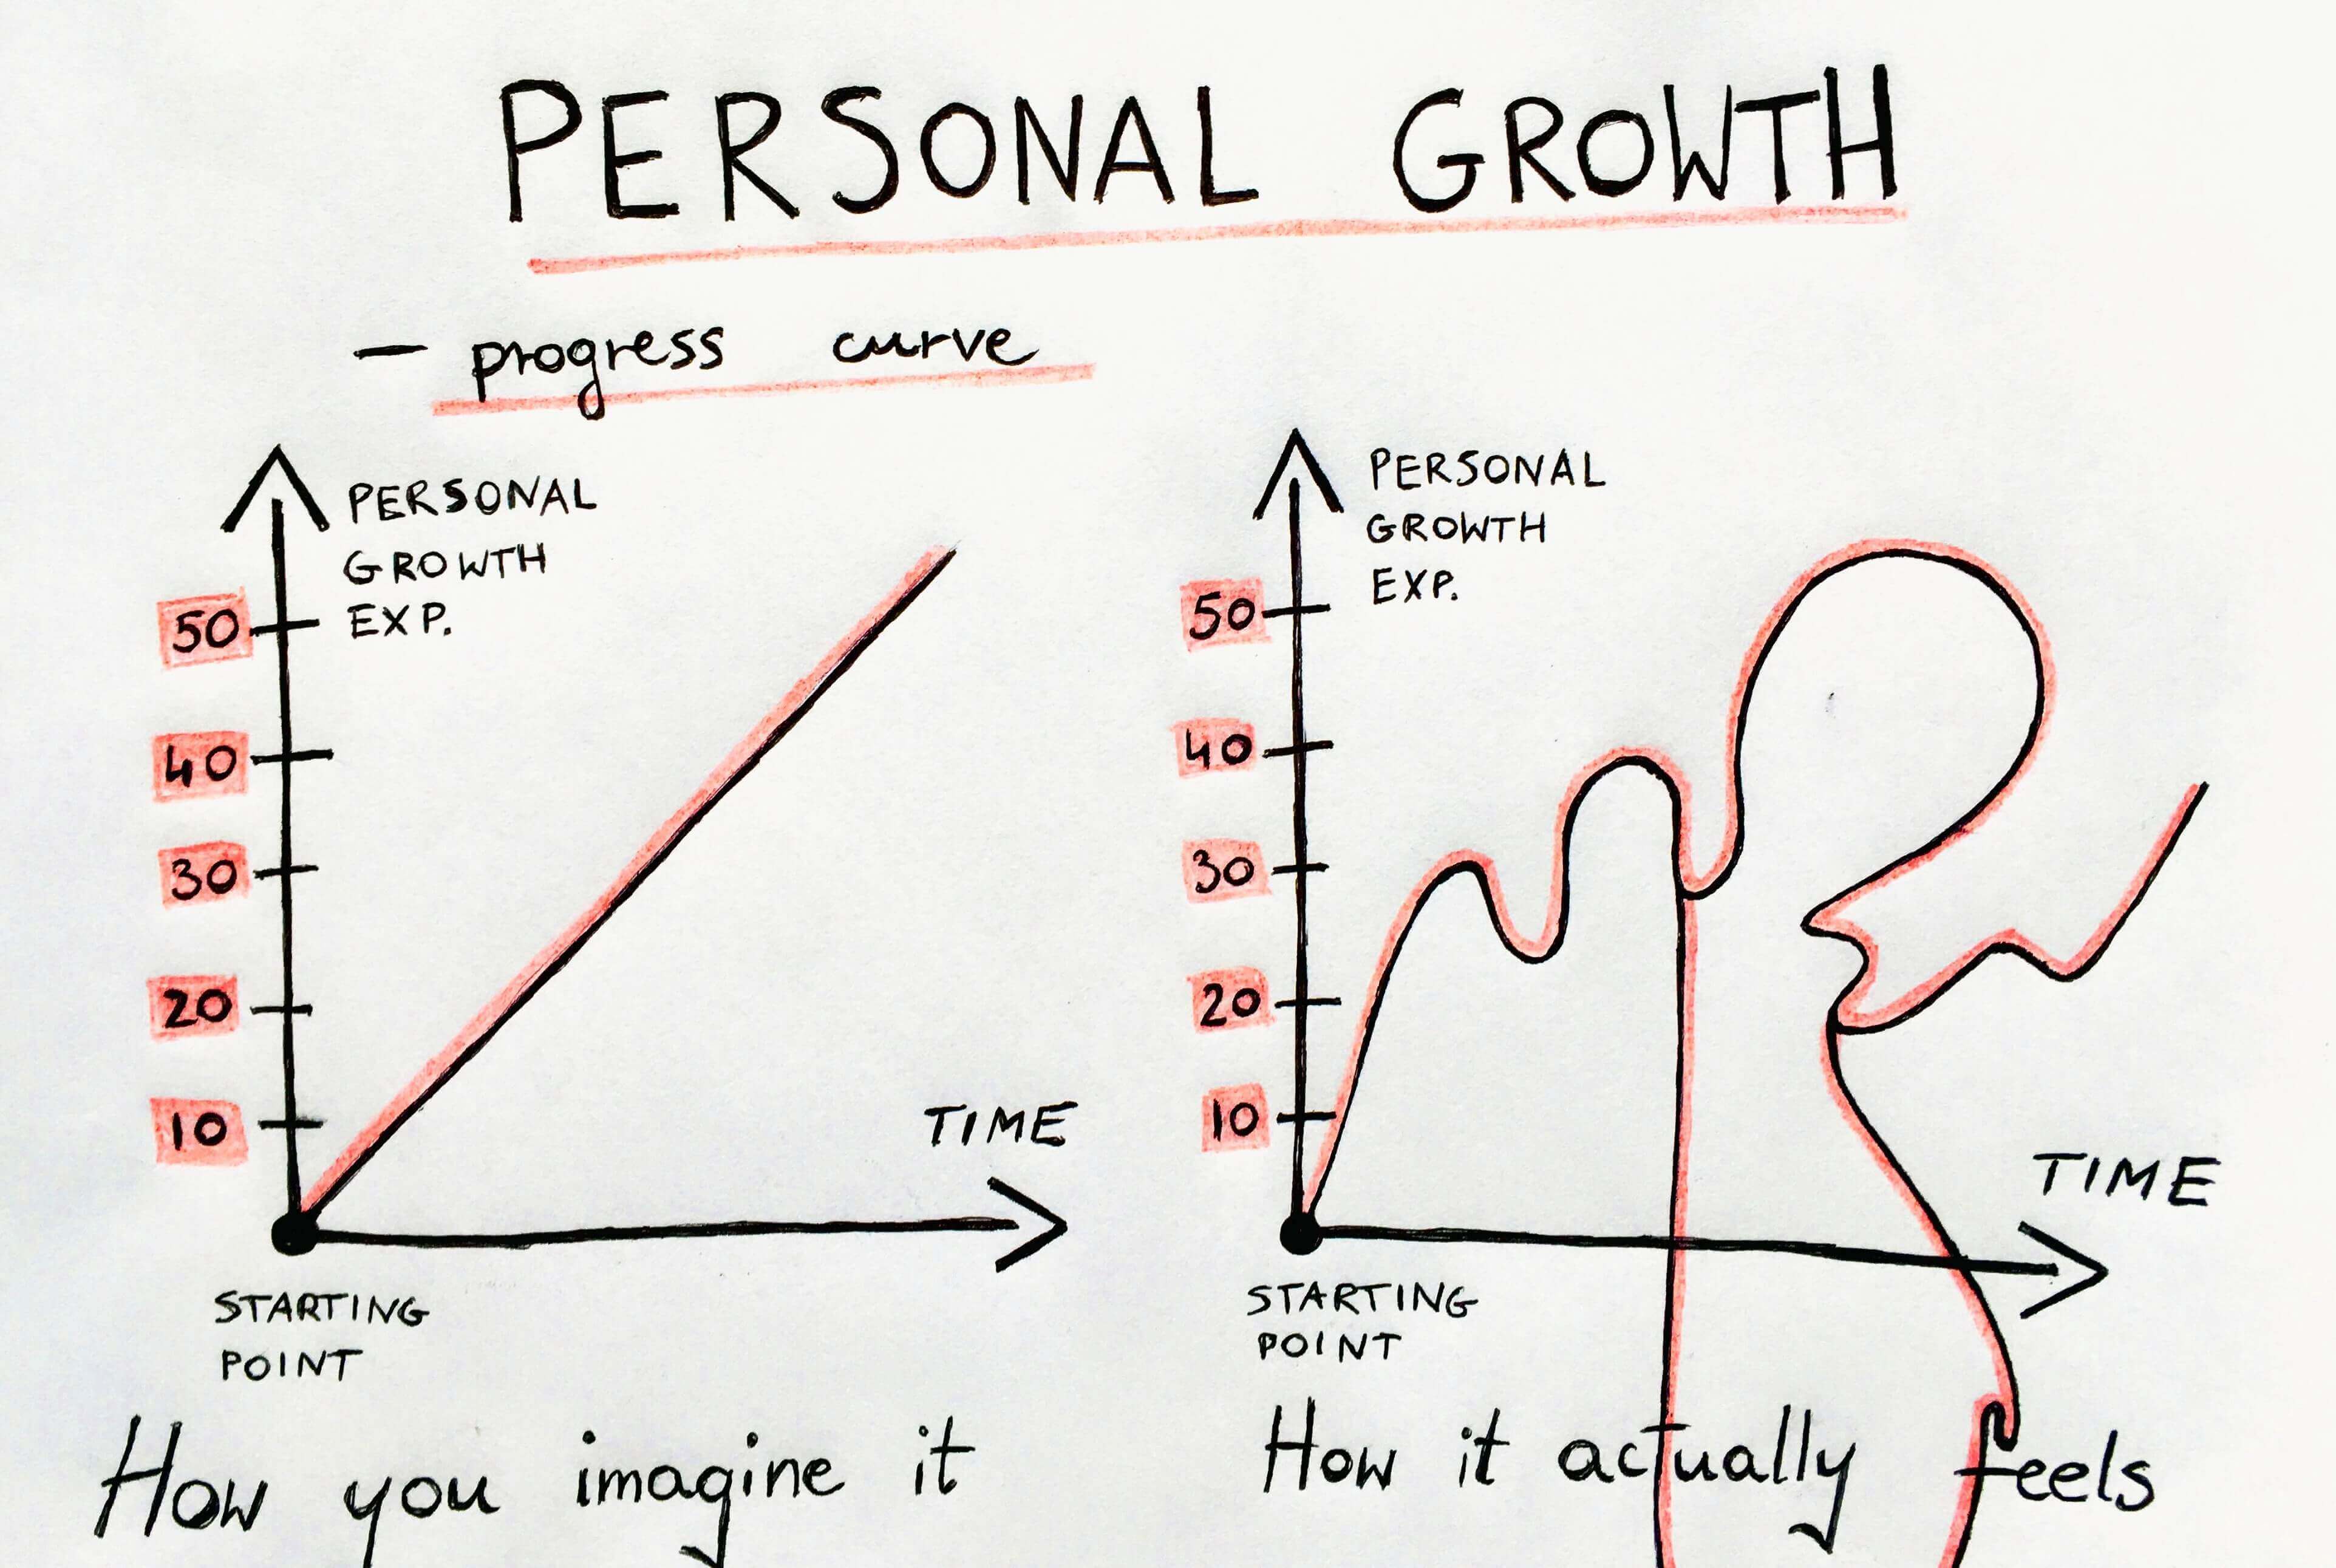 PERSONAL GROWTH
– progress curve
PERSONAL
GROWTH
EXP.
50
40
30
20
10
TIME
STARTING
POINT
How you imagine it
PERSONAL
GROWTH
EXP.
50
40
30
20
10
TIME
STARTING
POINT
How it actually feels